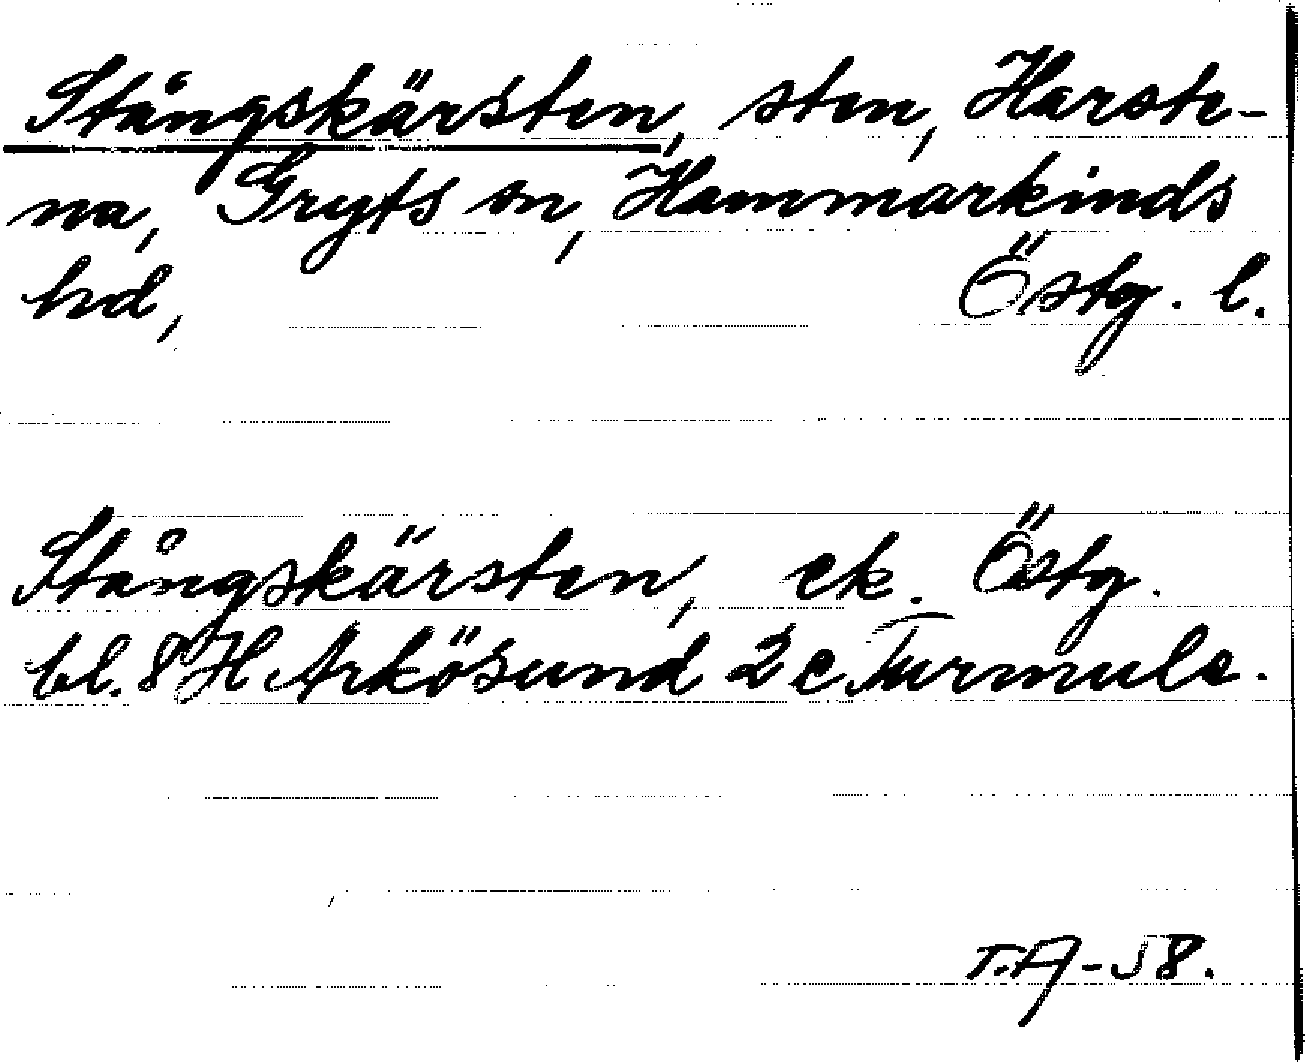 Stångskärsten, sten, Harste-
na, Gryts sn, Hammarkinds
hd, Östg. l.
Stångskärsten, ek. Östg.
bl. 8 H Arkösund 2 c. Turmuls.
T.A-58.